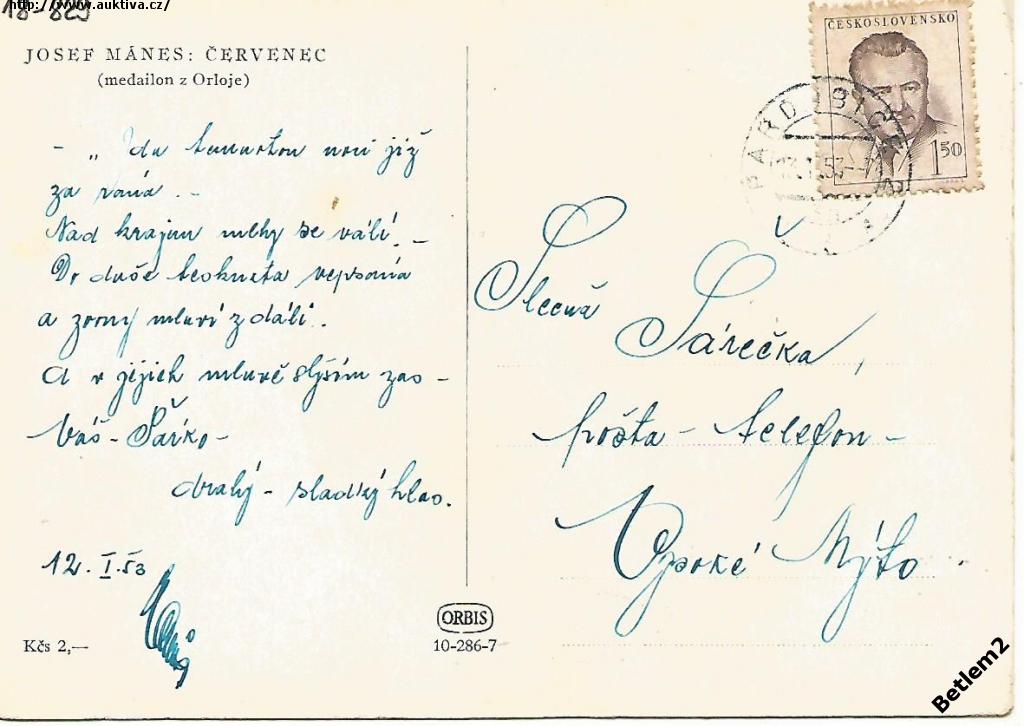 http://www.auktiva.cz/
18-829
JOSEF MÁNES: ČERVENEC
(medailon z Orloje)
za rána. -
Nad krajem mlhy se válí. -
Do duše teskneta vepsána
a zvony mluví z dáli.
A v jejich mluvě slyším zas -
Váš - Šárko -
drahý - sladký hlas.
12. I. 53
Kčs 2,—
ORBIS
10-286-7
ČESKOSLOVENSKO
1.50
PARDUBICE
Slečna
Šárečka,
pošta - telefon -
Vysoké Mýto.
Betlem2